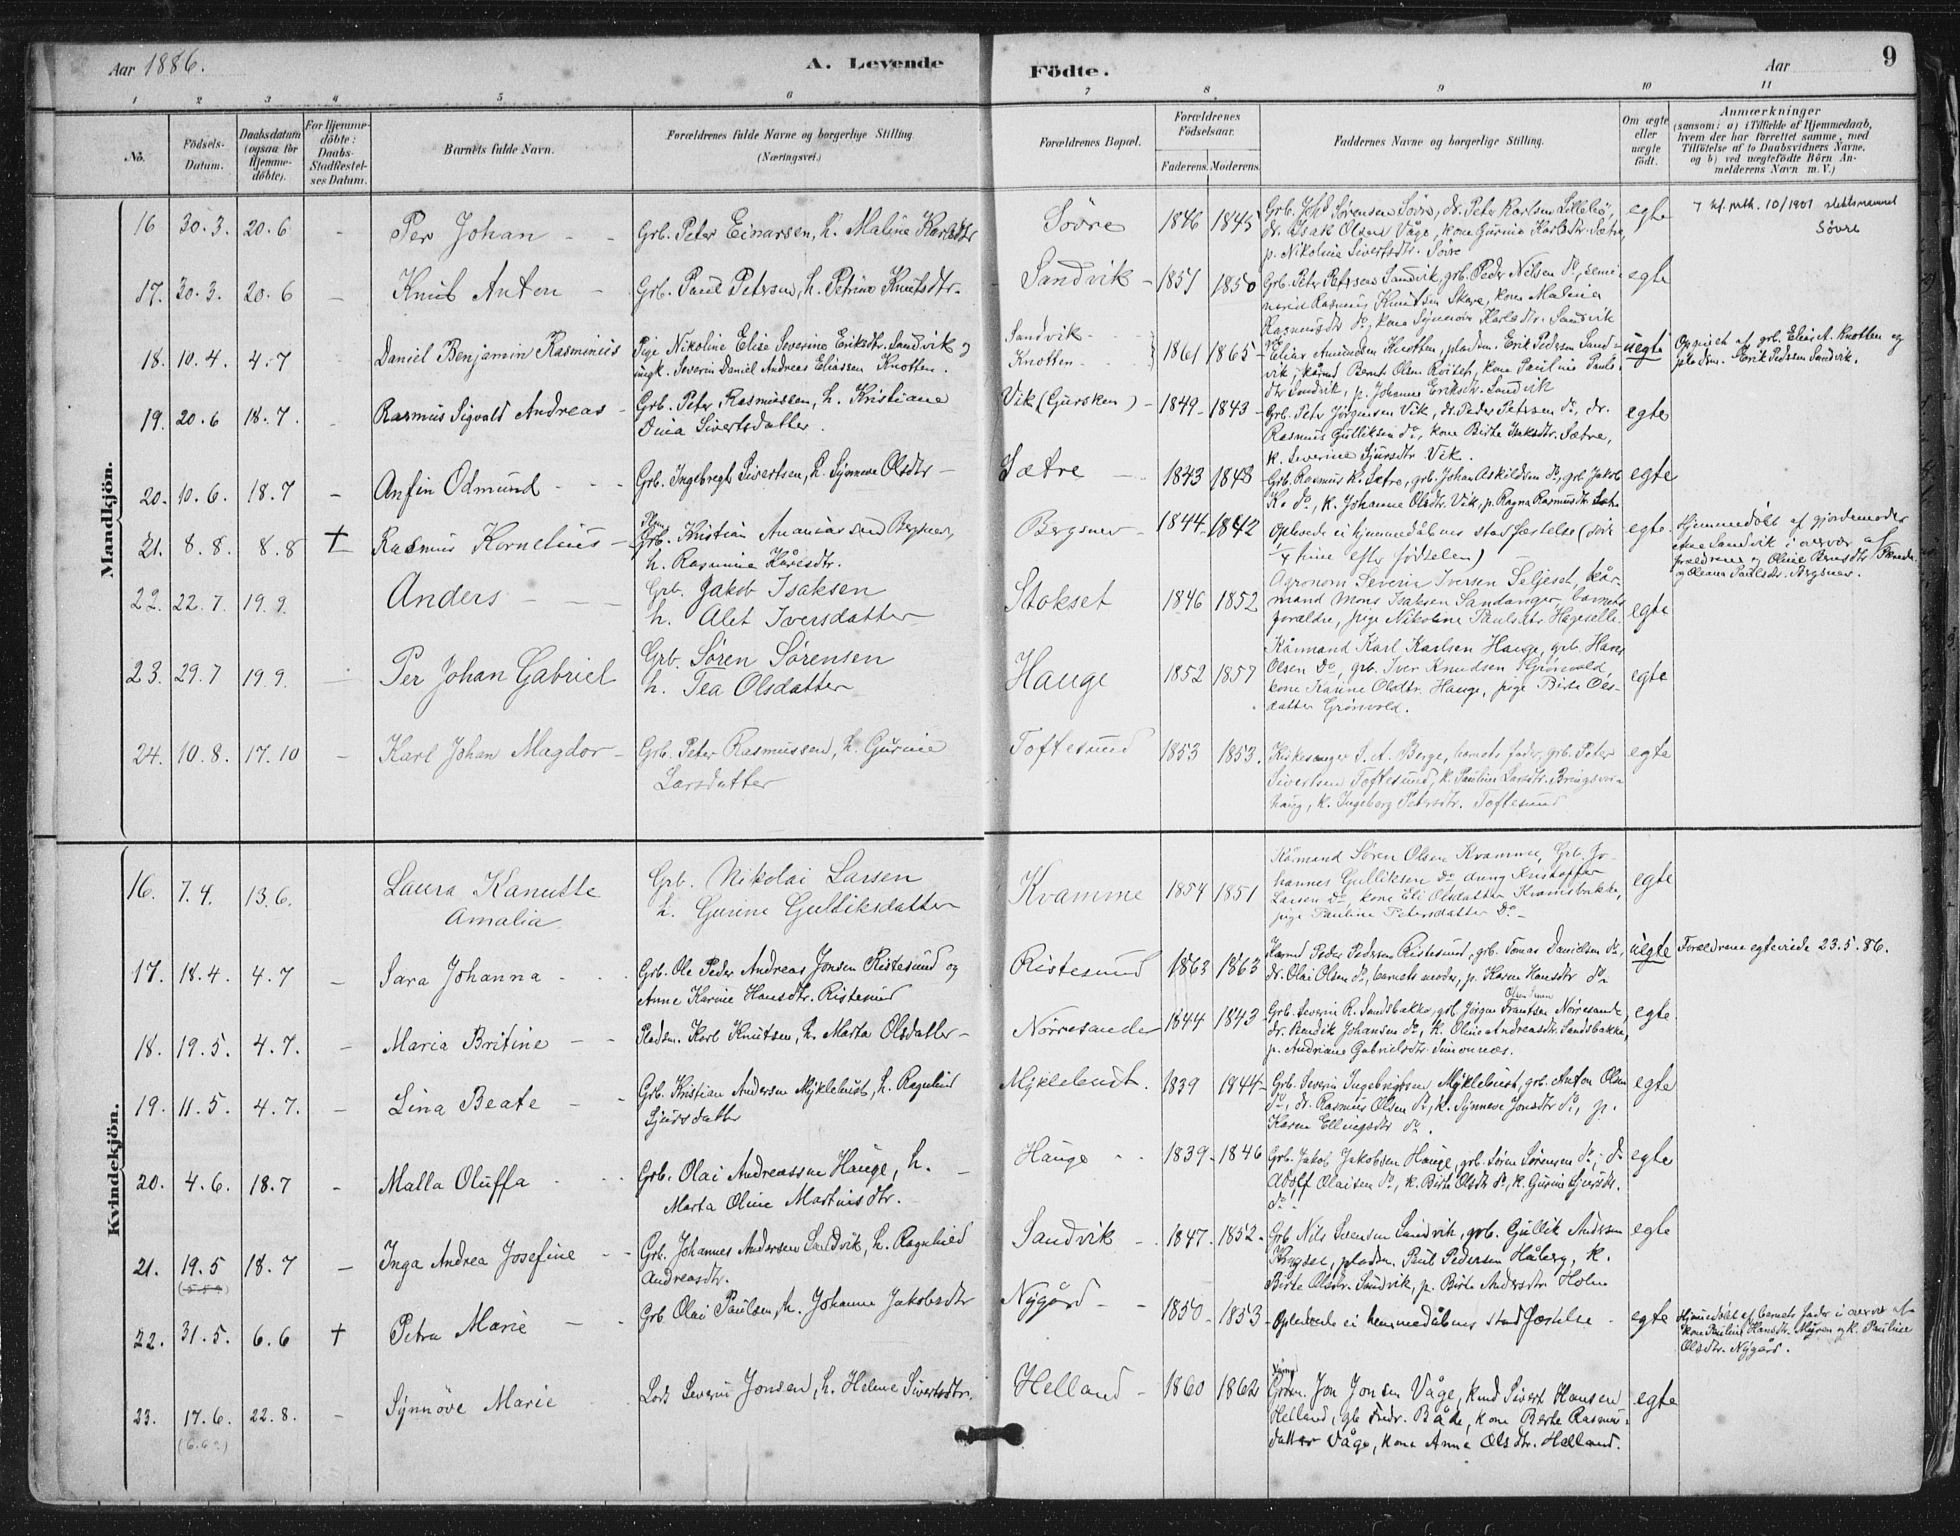 Aar 1886.
A. Levende
Födte.
Aar
9
1 2 3 4 5 6 7 8 9 10 11
No.
Födsels-Datum.
Daabsdatum (ogsaa for Hjemmedöbte).
For Hjemmedöbte: Daabs-Stadfæstelses Datum.
Barnets fulde Navn.
Forældrenes fulde Navne og borgerlige Stilling. (Næringsvei.)
Forældrenes Bopæl.
Forældrenes Födselsaar.
Faderens. Moderens.
Faddernes Navne og borgerlige Stilling.
Om ægte eller uægte födt.
Anmærkninger
(saasom: a) i Tilfælde af Hjemmedaab, hvem der har forrettet samme, med Tilföielse af to Daabsvidners Navne, og b) ved uægtefödte Börn Anmelderens Navn m. V.)
Mandkjön.
16 30.3. 20.6 – Per Johan – – Grb. Peter Einarsen, h. Maline Karlsdtr Søvre 1846 1845 egte
Grb. Johs Sørensen Søvre, dr. Peter Karlsen Lillebø,
dr. Isak Olsen Våge, kone Gurine Karlsdtr. Sætre,
p. Nikoline Sivertsdtr. Søvre
10/1901 slektsnavnet
Søvre
17. 30.3. 20.6 – Knut Anton – Grb. Paul Petersen, h. Petrine Knutsdtr. Sandvik – 1851 1850 egte
Grb. Peter Petersen Sandvik, grb. Peder Nilsen do, semi-
narist Rasmus Knutsen Skare, kone Malina
Rasmusdtr do, kone Synnøve Karlsdtr. Sandvik
18. 10.4. 4.7 – Daniel Benjamin Rasminius Pige Nikoline Elise Severine Eriksdtr. Sandvik og
ungk. Severin Daniel Andreas Eliassen Knotten.
Sandvik
Knotten 1861 1865 uegte
Elias Amundsen Knotten, pladsm. Erik Pedersen Sand-
vik, kårmd Bernt Olsen Røiset, kone Pauline Pauls-
dtr Sandvik, p. Johanne Eriksdtr. Sandvik
Opgivet af grb. Elias A. Knotten og
pladsm. Erik Pedersen Sandvik.
19. 20.6 18.7. – Rasmus Sigvald Andreas – Grb. Peter Rasmussen, h. Kristiane
Dina Sivertsdatter.
Vik (Gursken) – 1849 – 1843 – egte
Grb. Peter Jørgensen Vik, dr. Peder Petersen do, dr.
Rasmus Gulliksen do, kone Birte Isaksdtr. Sætre,
k. Severine Sjursdtr Vik.
20. 10.6. 18.7 – Anfin Odmund – Grb. Ingebregt Sivertsen, h. Synneve Olsdtr – Sætre – 1843 1848 egte
Grb. Rasmus K. Sætre, grb. Johan Askildsen do, grb. Jakob
K. do, k. Johanne Olsdtr. Vik, p. Ragna Rasmusdtr. Sætre
21. 8.8. 8.8 † Rasmus Kornelius – Grb. Kristian Ananiassen Bergsnev,
h. Rasmine Kåresdtr.
Bergsnev – 1844 – 1842 egte.
Oplevede ei hjemmedåbens stadfæstelse (døde
1/4 time efter fødselen)
Hjemmedøbt af gjordemoder
Sandvik i overvær af
forældrene og Oline
og Oleane Paulsdtr. Bergsnev.
22. 22.7. 19.9. Anders – – – Grb. Jakob Isaksen
h. Alet Iversdatter
Stokset 1846 1852 egte
Agronom Severin Iversen Seljeset, kår-
mand Mons Isaksen Sandanger, barnets
forældre, pige Nikoline Paulsdtr. Hageselle
23. 29.7 19.9. – Per Johan Gabriel Grb. Søren Sørensen
h. Tea Olsdatter
Hauge 1852 1857 egte
Kårmand Karl Karlsen Hauge, grb. Hans
Olsen Do, grb. Iver Knudsen Grönvold,
kone Karine Olsdtr. Hauge, pige Birte Ols-
datter Grönvold.
24. 10.8. 17.10 – Karl Johan Magdor – Grb. Peter Rasmussen, h. Gurine
Larsdatter
Toftesund 1853 1853. egte
Kirkesanger S. A. Berge, barnets fader, grb. Peter
Sivertsen Toftesund, k. Pauline Larsdtr. Bringsvor-
haug, k. Ingeborg Petersdtr. Toftesund
Kvindekjön.
16. 7.4. 13.6. Laura Kanutte
Amalia
Grb. Nikolai Larsen
h. Gurine Gulliksdatter
Kvamme 1854 1851 egte
Kårmand Søren Olsen Kvamme, Grb. Jo-
hannes Gulliksen Do dreng Kristoffer
Larsen Do, kone Eli Olsdatter Kvamsbakke,
pige Pauline Petersdatter Do –
17. 18.4. 4.7 – Sara Johanna – Grb. Ole Peder Andreas Jonsen Ristesund og
Anne Karine Hansdtr. Ristesund
Ristesund 1863 1863 uegte
Peder Pedersen Ristesund, grb. Tomas Danielsen do,
dr. Olai Olsen do, barnets moder, p. Karen Hansdtr do
Forældrene egteviede 23.5.86.
18. 19.5. 4.7. – Maria Britine – – Pladsm. Karl Knutsen, h. Marta Olsdatter – Nörresande 1844 1843 egte.
Grb. Severin R. Sandsbakke, grb. Jørgen Frantsen Nørresande,
dr. Bendik Johansen do, k. Oline Andreasdtr. Sandsbakke,
p. Andriane Gabrielsdtr. Simonnes.
19. 11.5. 4.7. – Lina Beate – – Grb. Kristian Andersen Myklebust, h. Ragnhild
Sjursdatter
Myklebust. 1839 1844 – egte
Grb. Severin Ingebrigtsen Myklebust, grb. Anton Olsen
do, dr. Rasmus Olsen do, k. Synneve Jonsdtr do, p.
Karen Ellingsdtr do.
20. 4.6. 18.7 – Malla Oluffa Grb. Olai Andreassen Hauge, h. –
Marta Oline Martinisdtr.
Hauge 1839 – 1846 egte
Grb. Jakob Jakobsen Hauge, grb. Søren Sørensen do, d.
Adolf Olaisen do, k. Birte Olsdtr do, k. Gurine Sjursdtr.
do.
21. 19.5 18.7 – Inga Andrea Josefine – – Grb. Johannes Andersen Sandvik, h. Ragnhild
Andreasdtr.
Sandvik – 1847. 1852. egte
Grb Nils Svensen Sandvik, grb. Gullik Andersen
pladsm. Paul Pedersen Håberg, k.
Birte Olsdtr. Sandvik, p. Birte Andersdtr Holm
22. 31.5. 6.6 † Petra Marie – Grb Olai Paulsen, h. Johanne Jakobsdtr Nygård – 1850 – 1853 – egte
Oplevede ei hjemmedåbens stadfæstelse –
Hjemmedøbt af barnets fader i overvær af
kone Pauline Hansdtr. Myren og k. Pauline
Olsdtr. Nygård.
23. 17.6. 22.8. – Synnöve Marie Lods Severin Jonsen, h. Helene Sivertsdtr. Helland – 1860 1862 egte
(6.6?)
Jon Jonsen Våge, Sivert Hansen
Helland, gb. Fredr. Både, kone Berte Rasmus-
datter Våge, kone Anna Olsdtr. Helland.